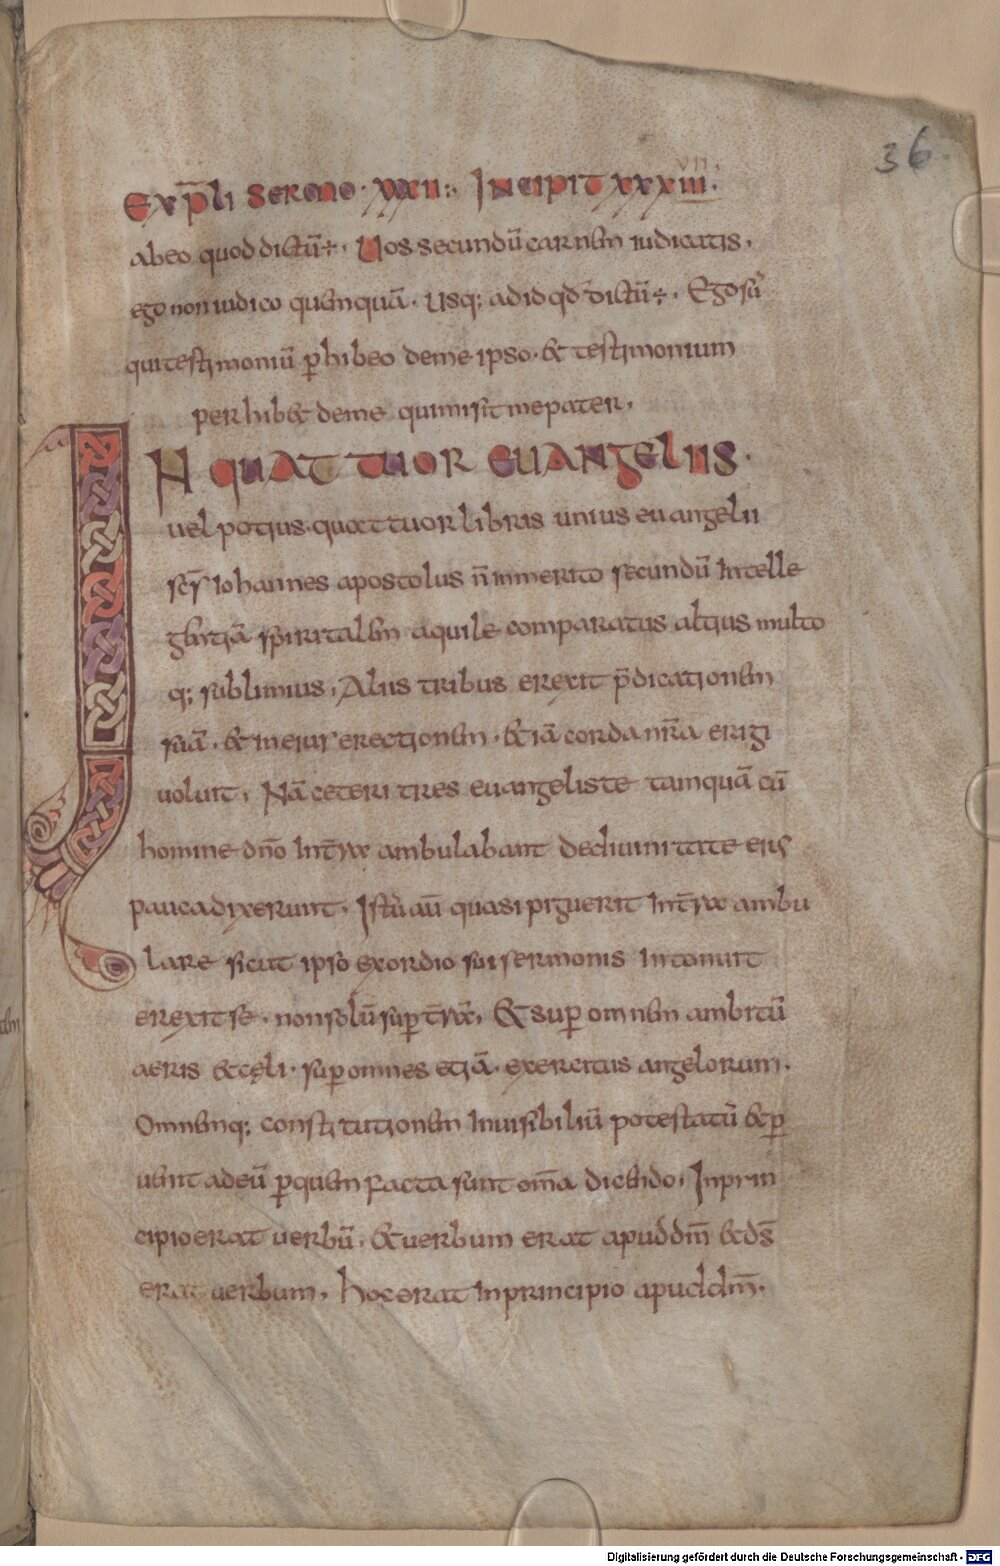 36
VII
Expłi Sermo · XXXII · Incipit XXXIII ·
ab eo quod dictū ÷ · Uos secundū carnem iudicatis ·
ego non iudico quemquā · Usq; ad id qđ dictū ÷ · Ego sū
qui testimoniū ꝑhibeo de me ipso · & testimonium
perhib& de me qui misit me pater ·
IN QUATTUOR EUANGELIIS ·
uel potius · quattuor libris unius euangelii
scs̄ Iohannes apostolus n̄ inmerito secundū Intelle
gentiā spiritalem aquile comparatus altius multo
q; sublimius · Aliis tribus erexit p̄dicationem
suā · & in eius erectionem · &iā corda nr̄a erigi
uoluit · Nā ceteri tres euangeliste tamquā cū
homine dn̄o In t̄ra ambulabant de diuinitate eius
pauca dixerunt · Istū aū quasi piguerit In t̄ra ambu
lare sicut ipso exordio sui sermonis Intonuit
erexit se · non solū suꝑ t̄rā · & suꝑ omnem ambitū
aeris & cęli · suꝑ omnes etiā · exercitus angelorum ·
Omnemq; constitutionem Inuisibiliū potestatū & ꝑ
uenit ad eū ꝑ quem facta sunt om̄a dicendo · In prin
cipio erat uerbū · & uerbum erat apud dm̄ & ds̄
erat uerbum · hoc erat In principio apud dm̄ ·
Digitalisierung gefördert durch die Deutsche Forschungsgemeinschaft - DFG